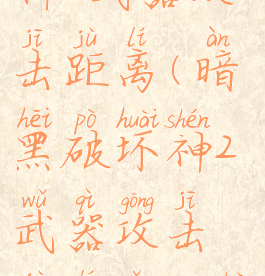 jī jù lí àn
击距离(暗
hēi pò huài shén
黑破坏神2
wǔ qì gōng jī
武器攻击